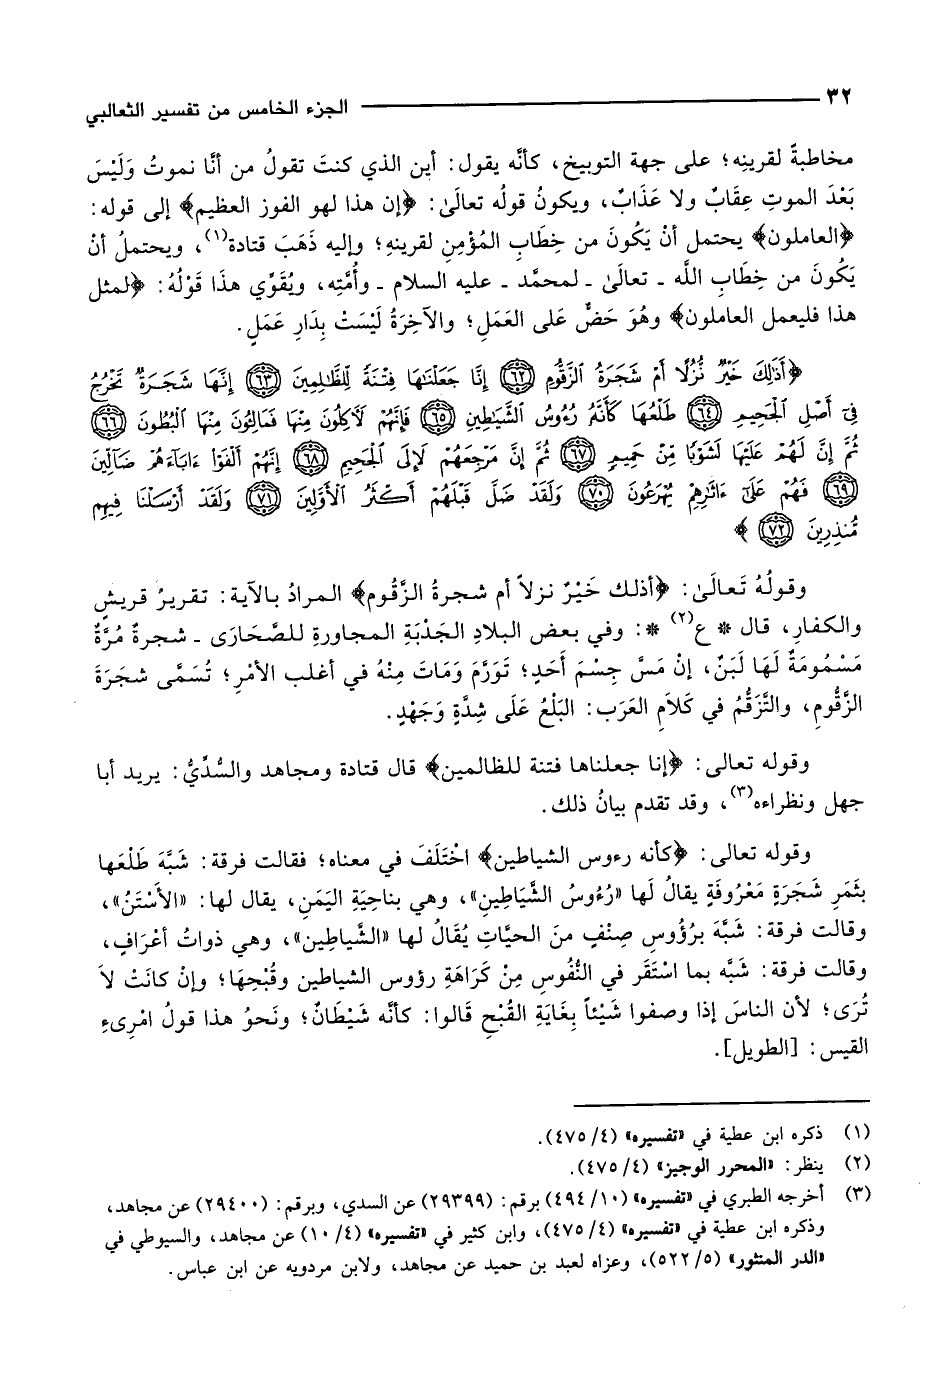 ٣٢ الجزء الخامس من تفسير الثعالبي
مخاطبةً لقرينِه؛ على جهة التوبيخ، كأنَّه يقول: أين الذي كنتَ تقولُ من أنَّا نموتُ وَلَيْسَ
بَعْدَ الموتِ عِقَابٌ ولا عَذَابٌ، ويكونُ قولُه تعالَىٰ: ﴿إن هذا لهو الفوز العظيم﴾ إلى قوله:
﴿العاملون﴾ يحتمل أنْ يَكُونَ من خِطَابِ المُؤْمِنِ لقرينِهِ؛ وإليه ذَهَبَ قتادة(١)، ويحتملُ أنْ
يَكُونَ من خِطَابِ اللَّه ـ تعالَىٰ ـ لمحمَّد ـ عليه السلام ـ وأُمَّتِه، ويُقَوِّي هذا قَوْلُهُ: ﴿لمثل
هذا فليعمل العاملون﴾ وهُوَ حَضٌّ على العَمَلِ؛ والآخِرَةُ لَيْسَتْ بِدَارِ عَمَلٍ.
﴿أَذَٰلِكَ خَيْرٌ نُّزُلًا أَمْ شَجَرَةُ ٱلزَّقُّومِ ٦٢ إِنَّا جَعَلْنَٰهَا فِتْنَةً لِّلظَّٰلِمِينَ ٦٣ إِنَّهَا شَجَرَةٌ تَخْرُجُ
فِىٓ أَصْلِ ٱلْجَحِيمِ ٦٤ طَلْعُهَا كَأَنَّهُۥ رُءُوسُ ٱلشَّيَٰطِينِ ٦٥ فَإِنَّهُمْ لَءَاكِلُونَ مِنْهَا فَمَالِـُٔونَ مِنْهَا ٱلْبُطُونَ ٦٦
ثُمَّ إِنَّ لَهُمْ عَلَيْهَا لَشَوْبًا مِّنْ حَمِيمٍ ٦٧ ثُمَّ إِنَّ مَرْجِعَهُمْ لَإِلَى ٱلْجَحِيمِ ٦٨ إِنَّهُمْ أَلْفَوْا۟ ءَابَآءَهُمْ ضَآلِّينَ
٦٩ فَهُمْ عَلَىٰٓ ءَاثَٰرِهِمْ يُهْرَعُونَ ٧٠ وَلَقَدْ ضَلَّ قَبْلَهُمْ أَكْثَرُ ٱلْأَوَّلِينَ ٧١ وَلَقَدْ أَرْسَلْنَا فِيهِم
مُّنذِرِينَ ٧٢﴾
وقولُهُ تَعالَىٰ: ﴿أذلك خَيْرٌ نزلاً أم شجرةُ الزَّقُوم﴾ المرادُ بالآية: تقريرُ قريشٍ
والكفارِ، قال * ع(٢) *: وفي بعض البلادِ الجَدْبَةِ المجاورةِ للصَّحَارَى ـ شجرةٌ مُرَّةٌ
مَسْمُومَةٌ لَهَا لَبَنٌ، إنْ مَسَّ جِسْمَ أَحَدٍ؛ تَوَرَّمَ وَمَاتَ مِنْهُ في أغلب الأمْرِ؛ تُسَمَّى شجَرَةَ
الزَّقُّومِ، والتَّزَقُّمُ في كَلاَمِ العَرَبِ: البَلْعُ عَلَى شِدَّةٍ وَجَهْدٍ.
وقوله تعالى: ﴿إنا جعلناها فتنة للظالمين﴾ قال قتادة ومجاهد والسُّدِّيُّ: يريد أبا
جهل ونظراءه(٣)، وقد تقدم بيانُ ذلك.
وقوله تعالى: ﴿كأنه رءوس الشياطين﴾ اخْتَلَفَ في معناه؛ فقالت فرقة: شَبَّهَ طَلْعَها
بثَمَرِ شَجَرَةٍ مَعْرُوفَةٍ يقالُ لَها «رُءُوسُ الشَّيَاطِينِ»، وهي بناحيَةِ اليَمَنِ، يقال لها: «الأَسْتَنُ»،
وقالت فرقة: شَبَّهَ برُؤُوسِ صِنْفٍ منَ الحيَّاتِ يُقَالُ لها «الشَّياطِين»، وهي ذواتُ أعْرَافٍ،
وقالت فرقة: شَبَّه بما اسْتَقَر في النُّفُوسِ مِنْ كَرَاهَةِ رؤوس الشياطين وقُبْحِهَا؛ وإنْ كانَتْ لاَ
تُرَى؛ لأن الناسَ إذا وصفوا شَيْئاً بِغَايَةِ القُبْحِ قَالُوا: كأنَّه شَيْطَانٌ؛ ونَحوُ هذا قولُ امْرِىءِ
القيس: [الطويل].
(١) ذكره ابن عطية في «تفسيره» (٤/ ٤٧٥).
(٢) ينظر: «المحرر الوجيز» (٤/ ٤٧٥).
(٣) أخرجه الطبري في «تفسيره» (١٠/ ٤٩٤) برقم: (٢٩٣٩٩) عن السدي، وبرقم: (٢٩٤٠٠) عن مجاهد،
وذكره ابن عطية في «تفسيره» (٤/ ٤٧٥)، وابن كثير في «تفسيره» (٤/ ١٠) عن مجاهد، والسيوطي في
«الدر المنثور» (٥/ ٥٢٢)، وعزاه لعبد بن حميد عن مجاهد، ولابن مردويه عن ابن عباس.